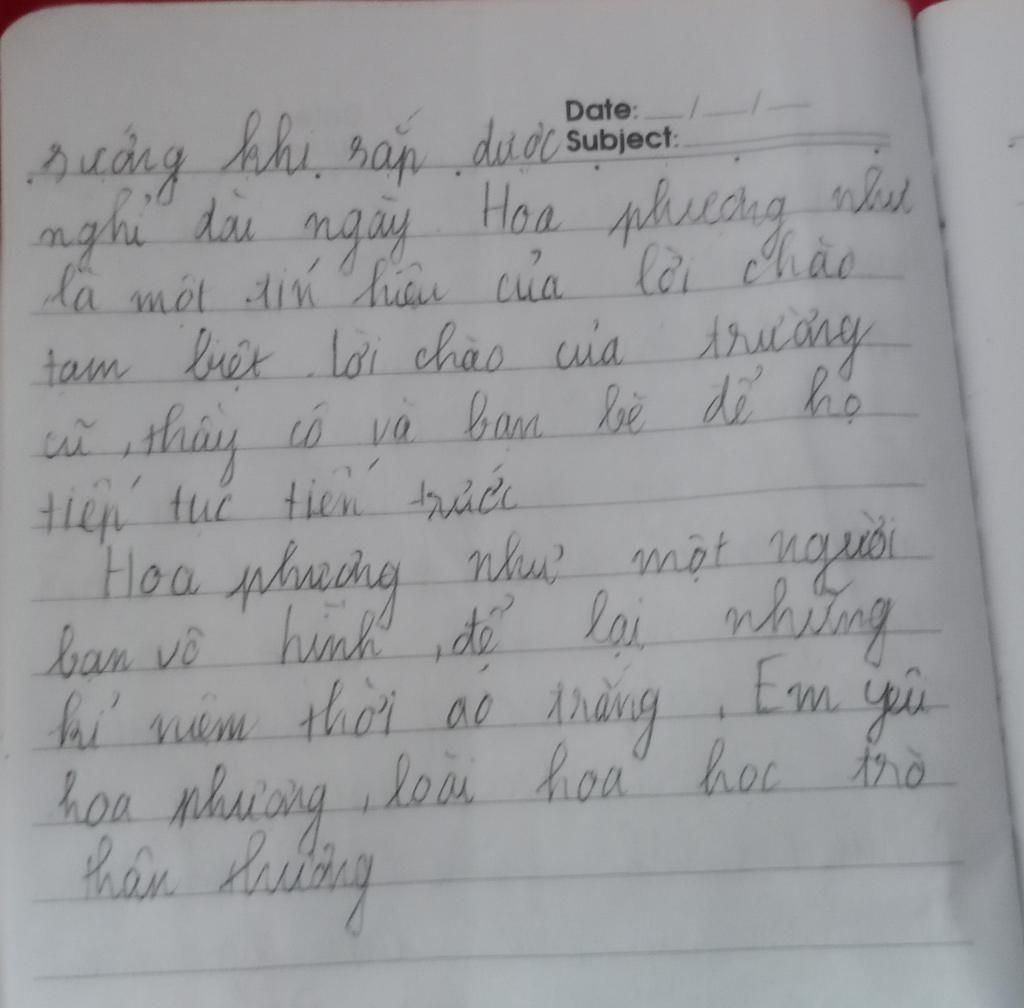 Date: __/__/__
Subject:
sướng khi sắp được
nghỉ dài ngày Hoa phượng như
là một tín hiệu của lời chào
tạm biệt lời chào của trường
cũ, thầy cô và bạn bè để họ
tiếp tục tiến trước
Hoa phượng như một người
bạn vô hình, để lại những
kỉ niệm thời áo trắng. Em yêu
hoa phượng, loài hoa học trò
thân thương